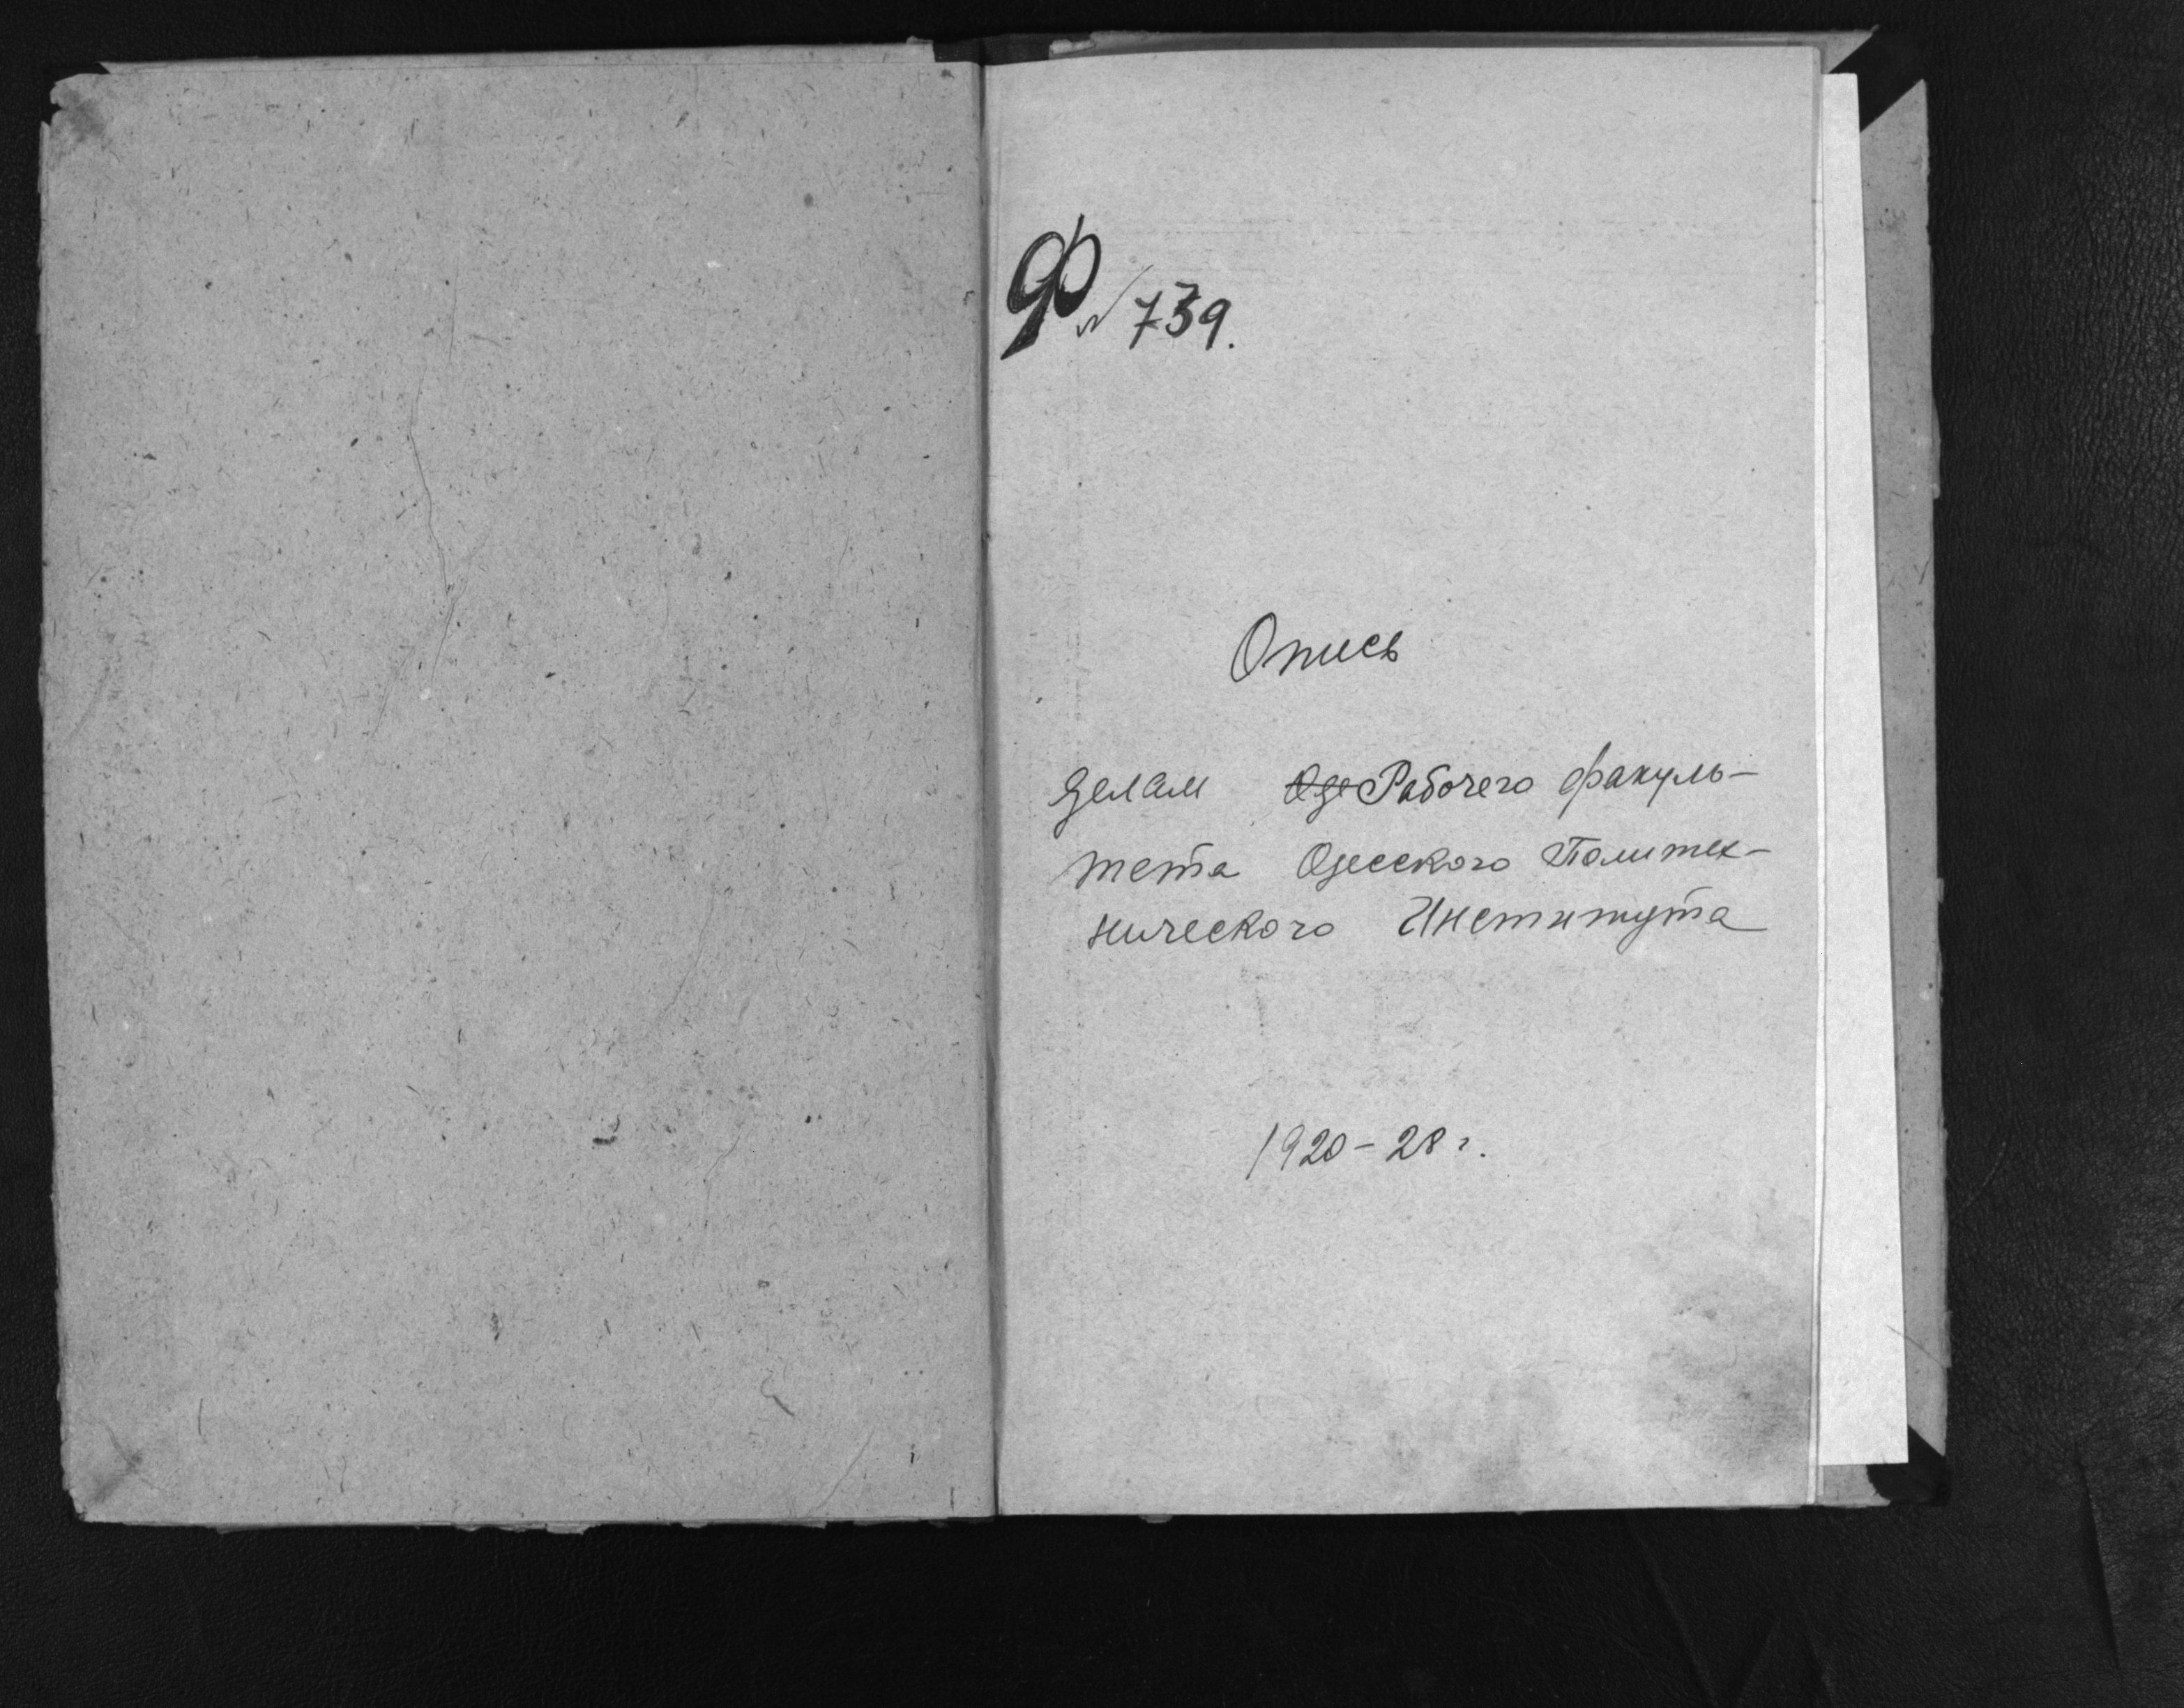 Ф № 739.
Опись
делам Оде Рабочего факуль-
тета Одесского Политех-
нического Института
1920-28 г.